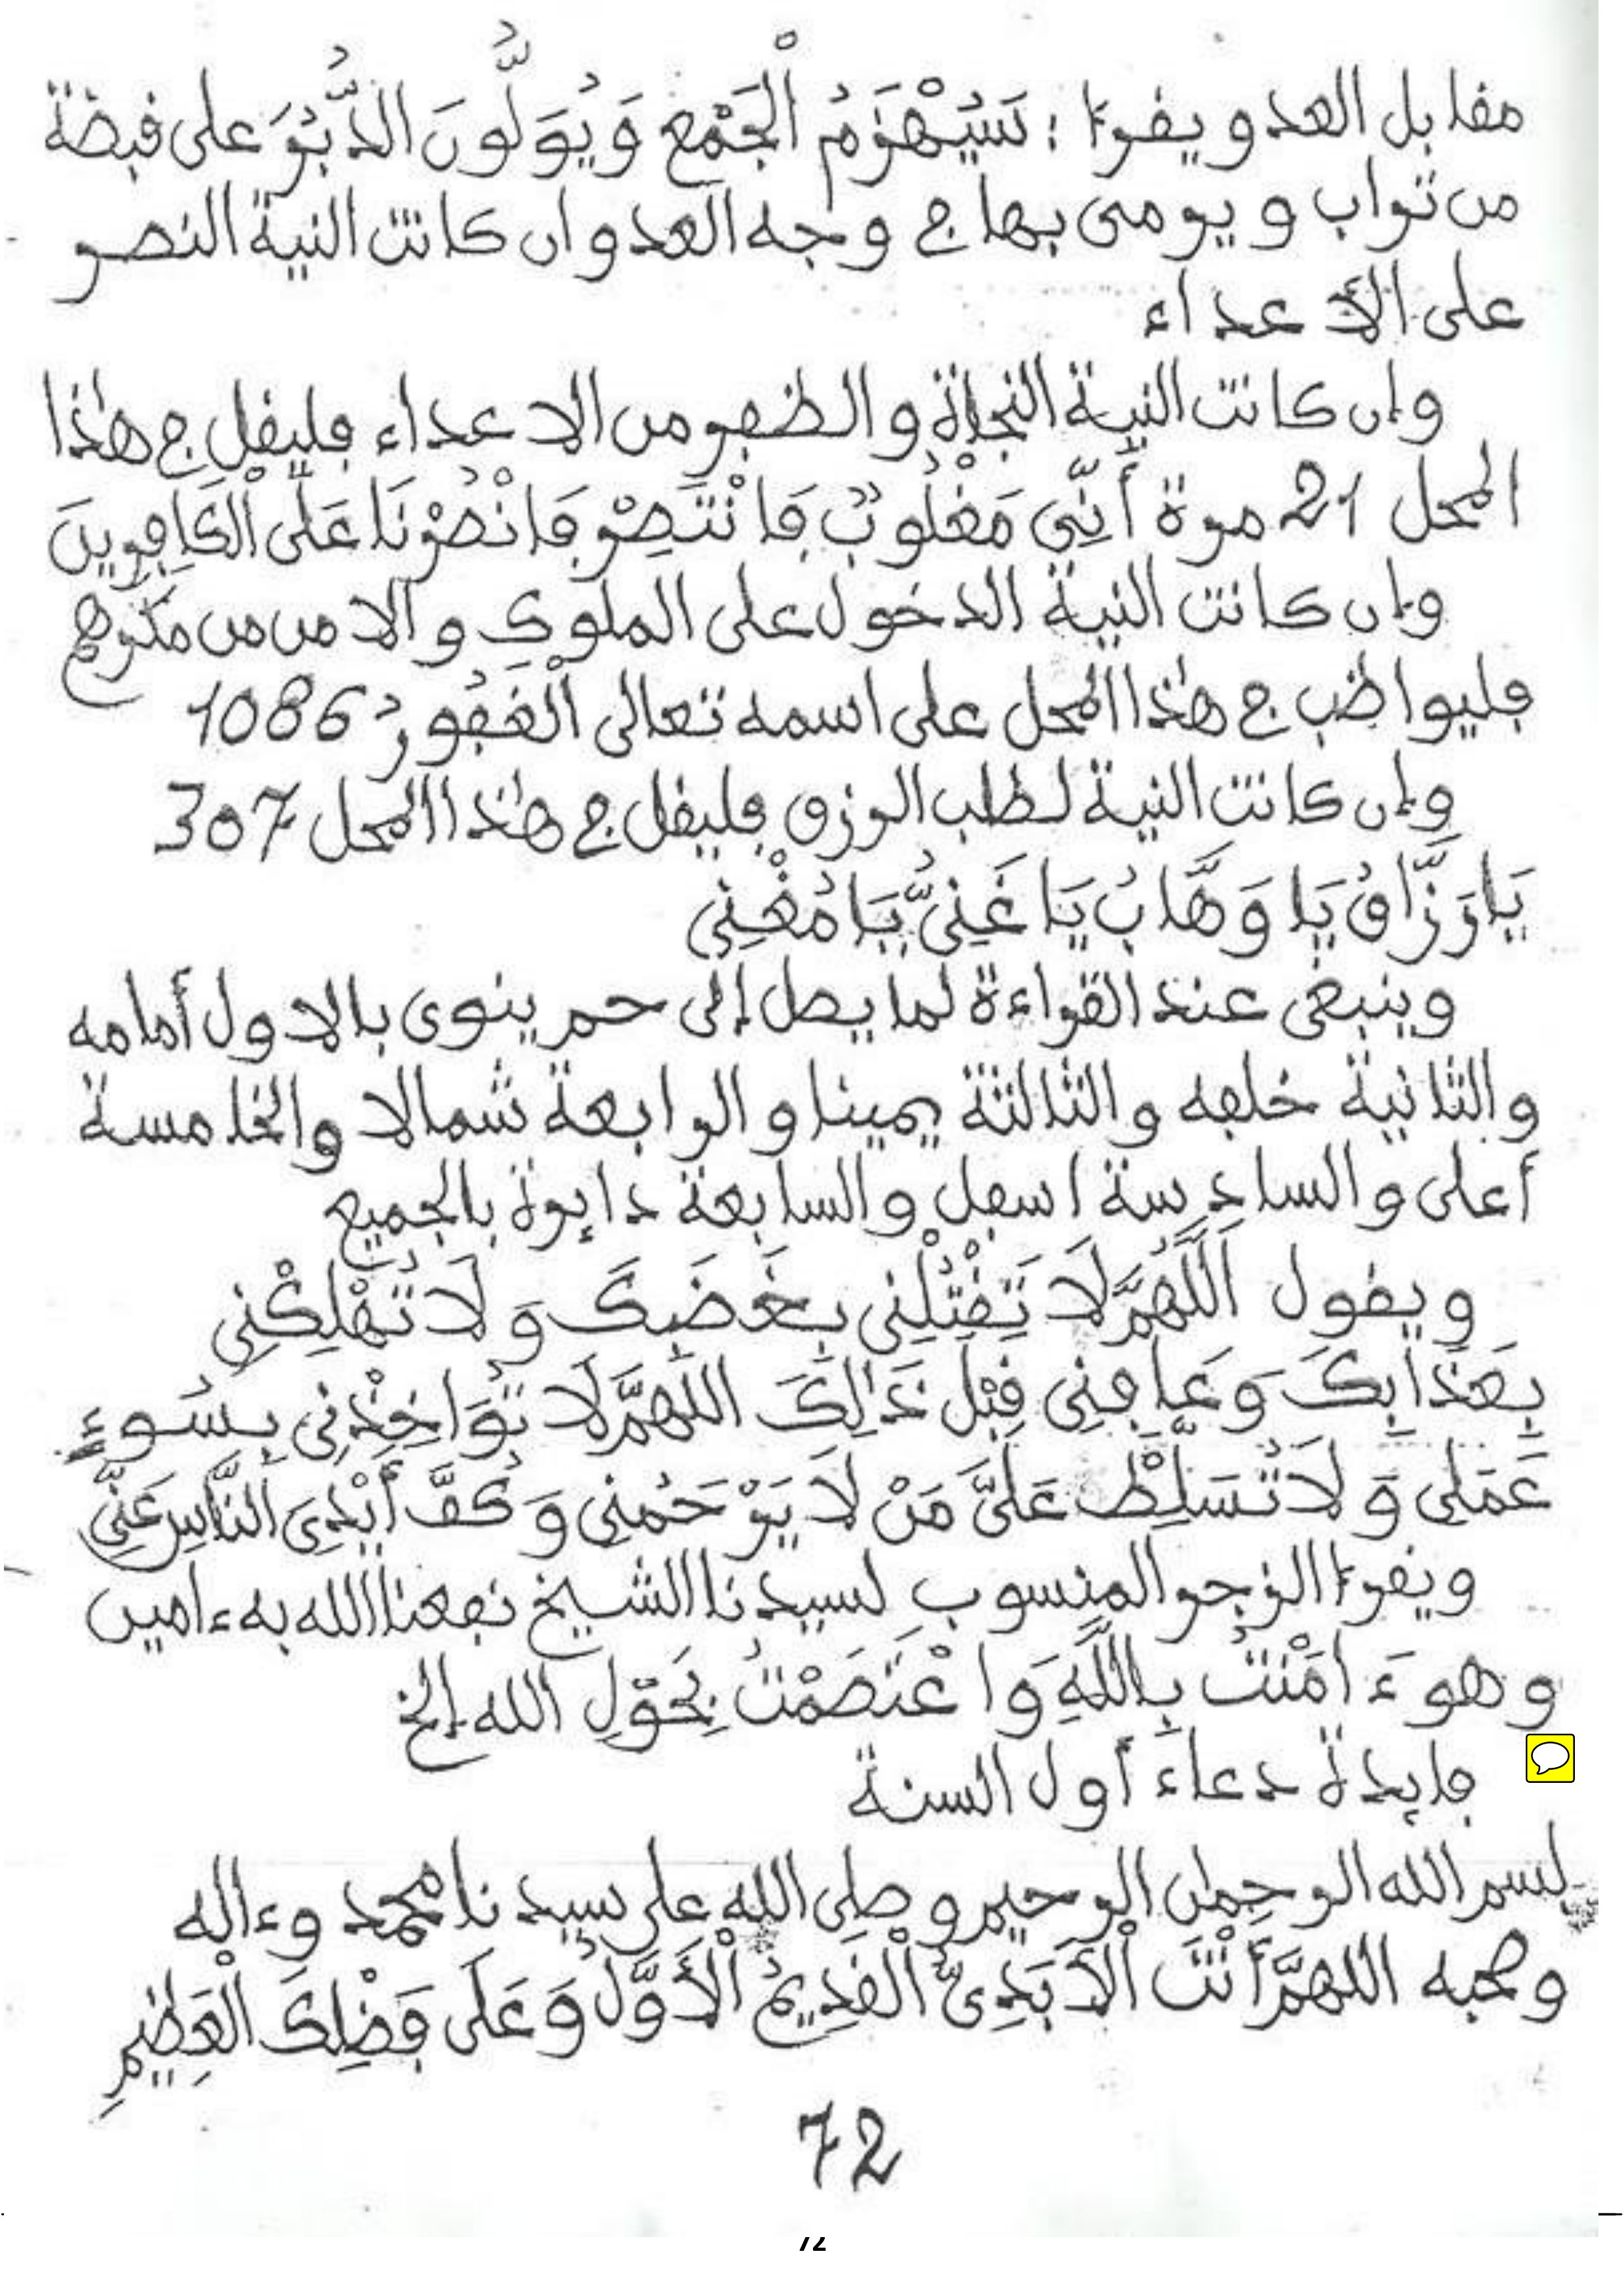 مقابل العدو ويقرأ: سَيُهْزَمُ الْجَمْعُ وَيُوَلُّونَ الدُّبُرَ على قبضة
من تراب و يرمى بها في وجه العدو ان كانت النية النصر
على الأعداء
وإن كانت النية النجاة والظفر من الاعداء فليقل في هذا
المحل 21 مرة أَنِّي مَغْلُوبٌ فَانْتَصِرْ فَانْصُرْنَا عَلَى الْكَافِرِينَ
وإن كانت النية الدخول على الملوك والامن من مكرهم
فليواظب في هذا المحل على اسمه تعالى الْغَفُورُ 1086
وإن كانت النية لطلب الرزق فليقل في هذا المحل 307
يَا رَزَّاقُ يَا وَهَّابُ يَا غَنِيُّ يَا مُغْنِي
وينبغى عند القراءة لما يصل إلى حم ينوى بالاول أمامه
والثانية خلفه والثالثة يمينا والرابعة شمالا والخامسة
أعلى والسادسة اسفل والسابعة دايرة بالجميع
ويقول اَللَّهُمَّ لَا تَقْتُلْنِي بِغَضَبِكَ وَلَا تُهْلِكْنِي
بِعَذَابِكَ وَعَافِنِي قَبْلَ ذَالِكَ اللَّهُمَّ لَا تُوَاخِذْنِي بِسُوءِ
عَمَلِي وَلَا تُسَلِّطْ عَلَيَّ مَنْ لَا يَرْحَمُنِي وَكُفَّ أَيْدِىَ النَّاسِ عَنِّي
ويقرأ الزجر المنسوب لسيدنا الشيخ نفعنا الله به ءامين
وهو ءَامَنْتُ بِاللَّهِ وَاعْتَصَمْتُ بِحَوْلِ الله إلخ
فايدة دعاء أول السنة
بسم الله الرحمٰن الرحيم و صلى الله على سيدنا محمد وءاله
وصحبه اللهمَّ أَنْتَ الْأَبَدِىُّ الْقَدِيمُ الْأَوَّلُ وَعَلَى فَضْلِكَ الْعَظِيمِ
72
72